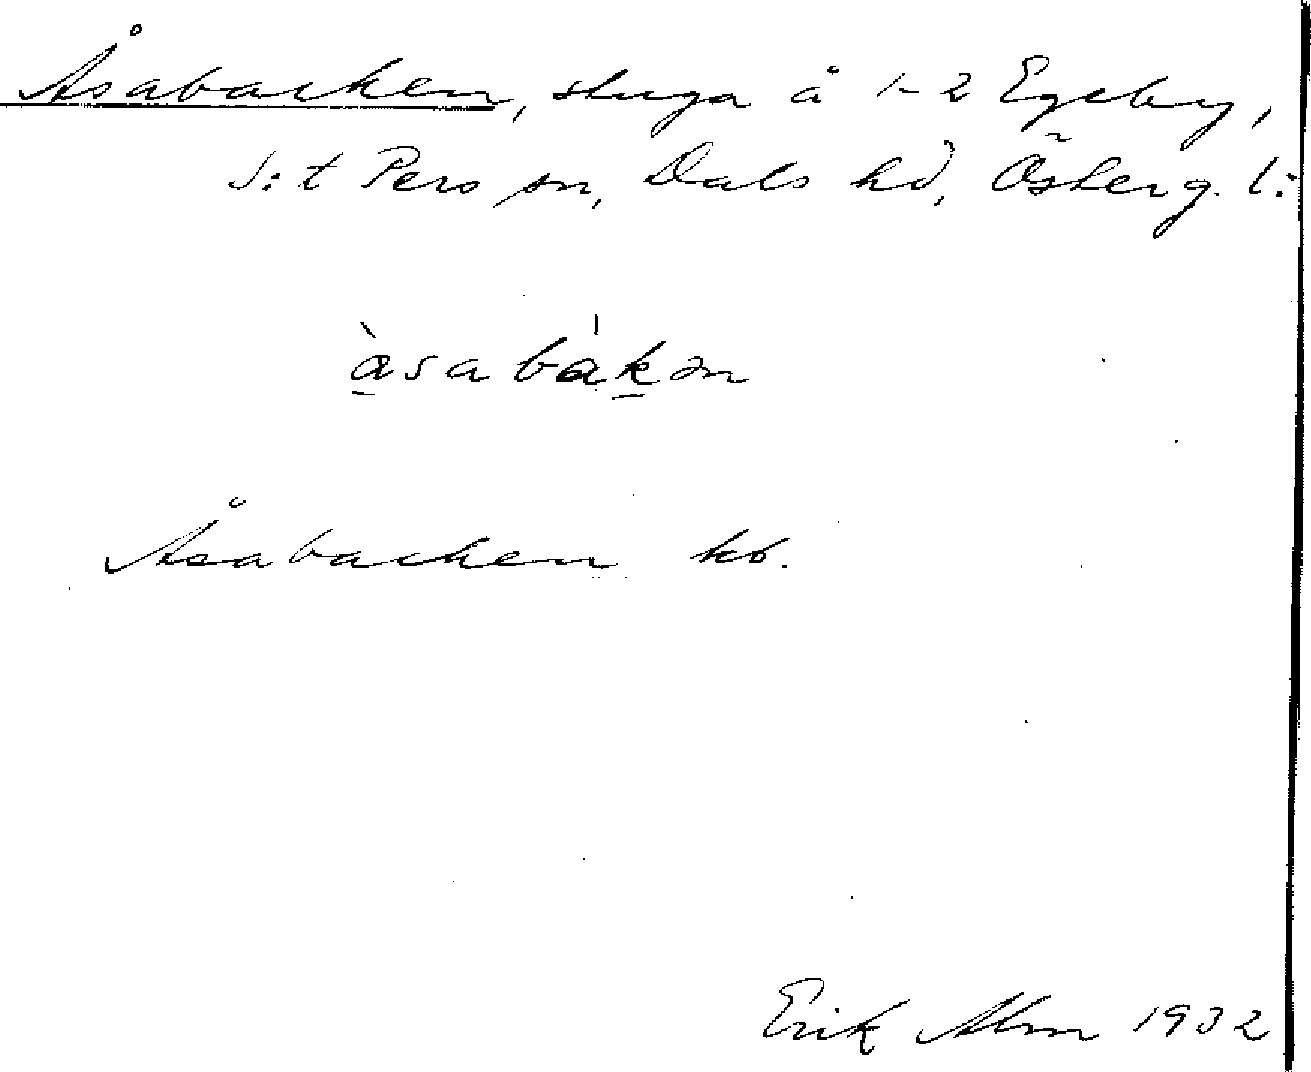 Åsabacken, stuga å 1-2 Egeby,
S:t Pers sn, Dals hd, Österg. l:
àsabákən
Åsabacken kb.
Erik Alm 1932